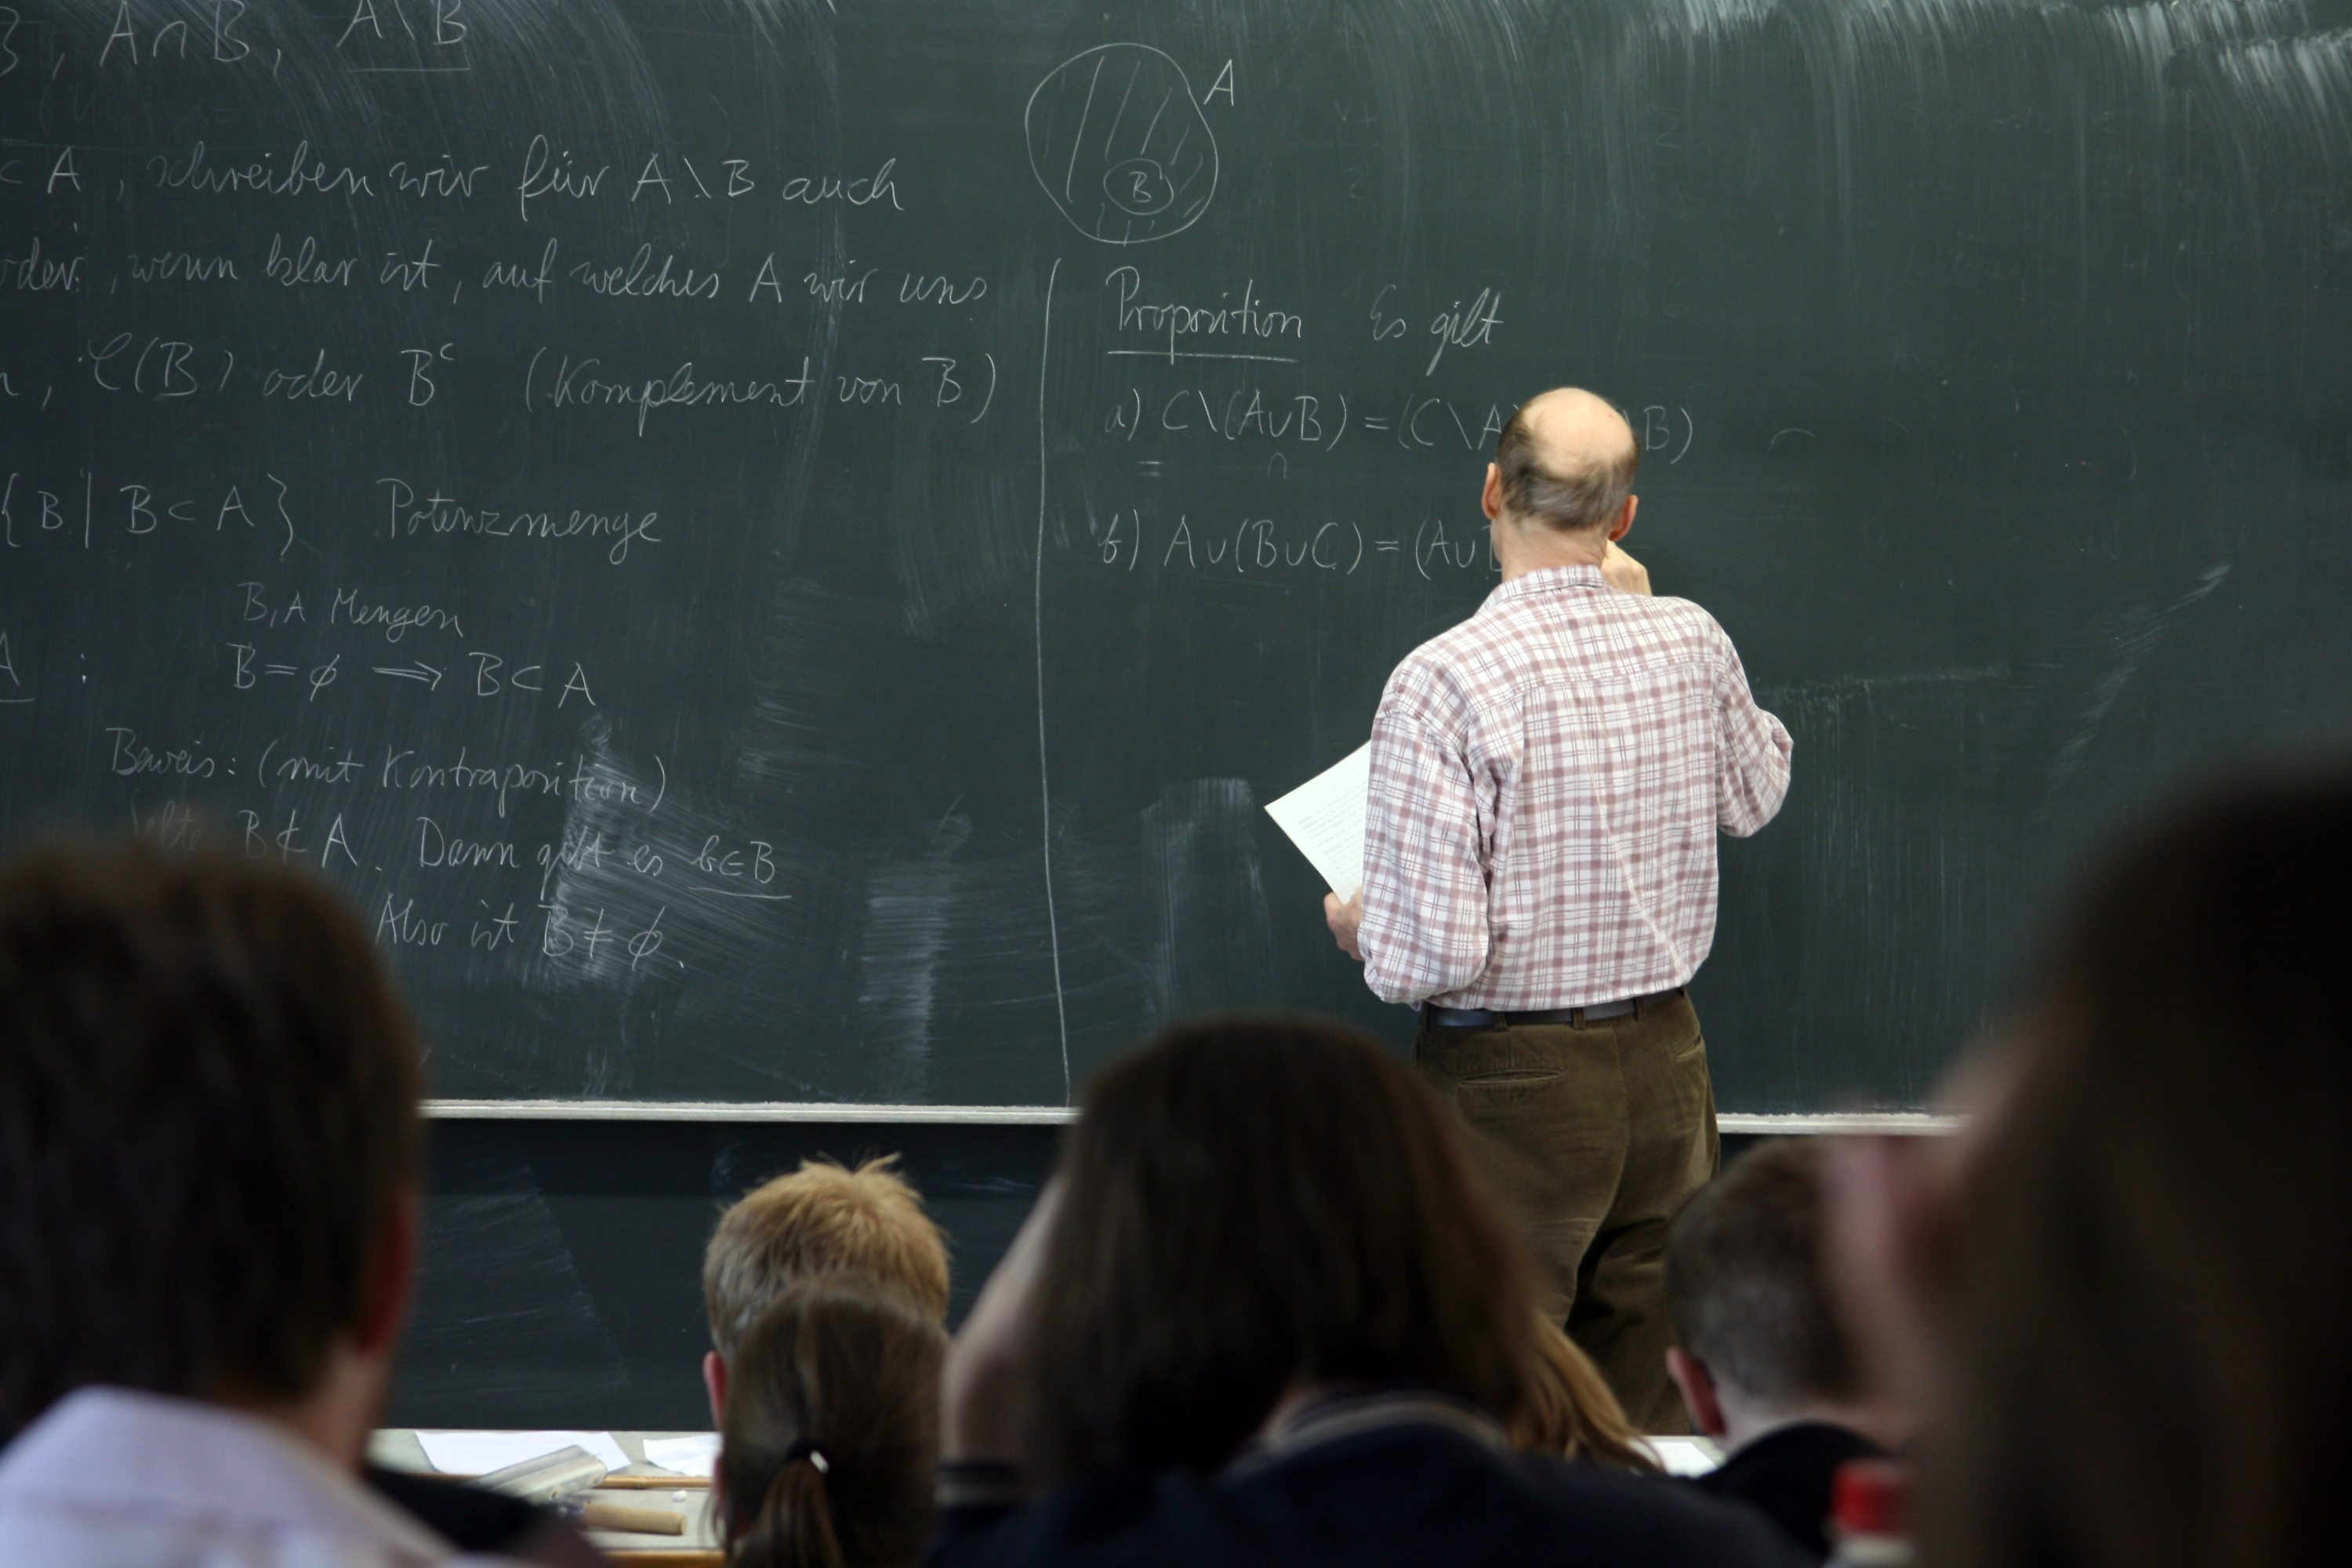 B, A∩B, A\B
⊂ A, schreiben wir für A\B auch
oder, wenn klar ist, auf welches A wir uns
n, C(B) oder Bᶜ (Komplement von B)
{B | B ⊂ A} Potenzmenge
B, A Mengen
A : B = ∅ ⟹ B ⊂ A
Beweis: (mit Kontraposition)
B ⊄ A. Dann gibt es b∈B
Also ist B ≠ ∅.
A
B
Proposition Es gilt
a) C\(A∪B) = (C\A B)
= ∩
b) A∪(B∪C) = (A∪